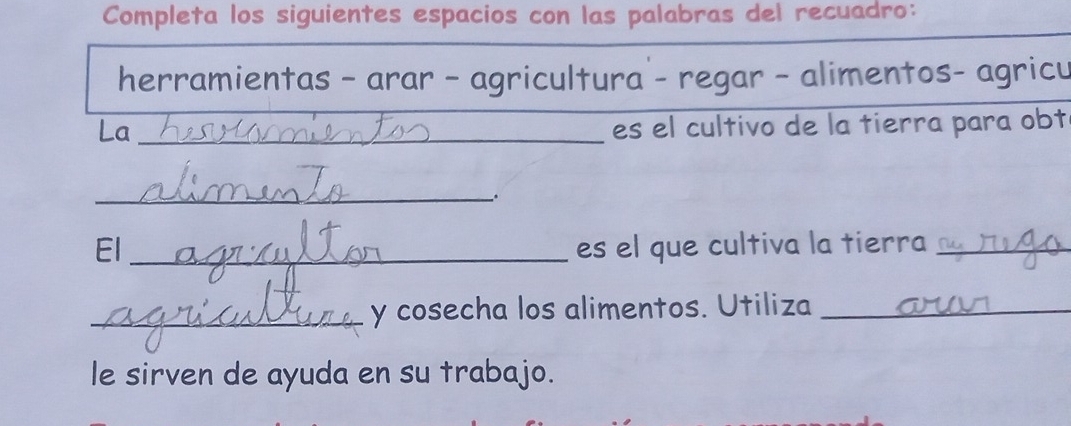 Completa los siguientes espacios con las palabras del recuadro:
herramientas - arar - agricultura - regar - alimentos- agricu
La herramientas es el cultivo de la tierra para obt
alimento.
El agricultor es el que cultiva la tierra rega
agricultura y cosecha los alimentos. Utiliza arar
le sirven de ayuda en su trabajo.